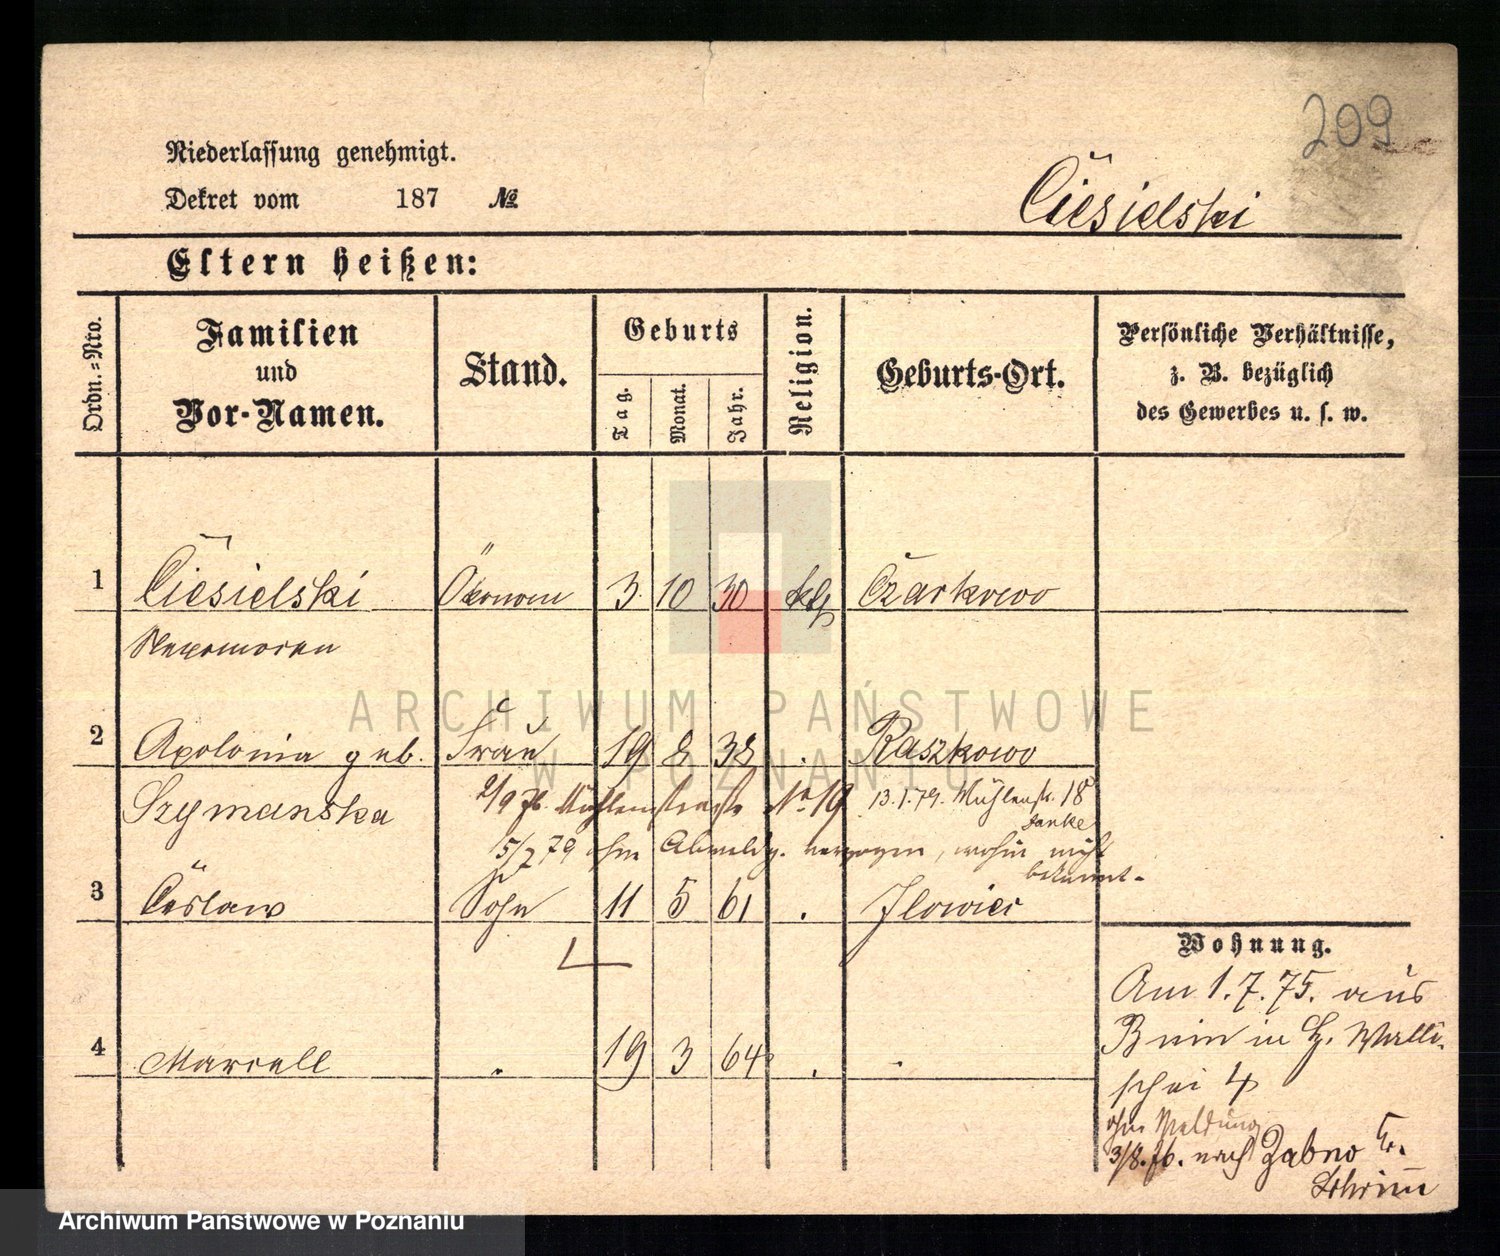 209
Niederlassung genehmigt.
Dekret vom 187 №
Ciesielski
Eltern heißen:
Ordn.=Nro.
Familien
und
Vor-Namen.
Stand.
Geburts
Tag.
Monat.
Jahr.
Religion.
Geburts-Ort.
Persönliche Verhältnisse,
z. B. bezüglich
des Gewerbes u. s. w.
1 Ciesielski Ökonom 3 10 30 kth Czarkowo
2 Apolonia geb. Frau 19 8 38 . Raszkowo
Szymanska
2/9 76. Mühlenstraße No 19 13.1.79. Mühlenstr. 18
15/7 79 ohne Abmeldg. verzogen, wohin nicht
bekannt.
3 Ceslaw Sohn 11 5 61 . Ilowiec
4 Marcell . 19 3 64 . .
Wohnung.
Am 1.7.75. aus
Bnin in St. Walli-
schei 4
ohne Meldung
3/8.76. nach Zabno Kr.
Schrimm
ARCHIWUM PAŃSTWOWE
W POZNANIU
Archiwum Państwowe w Poznaniu